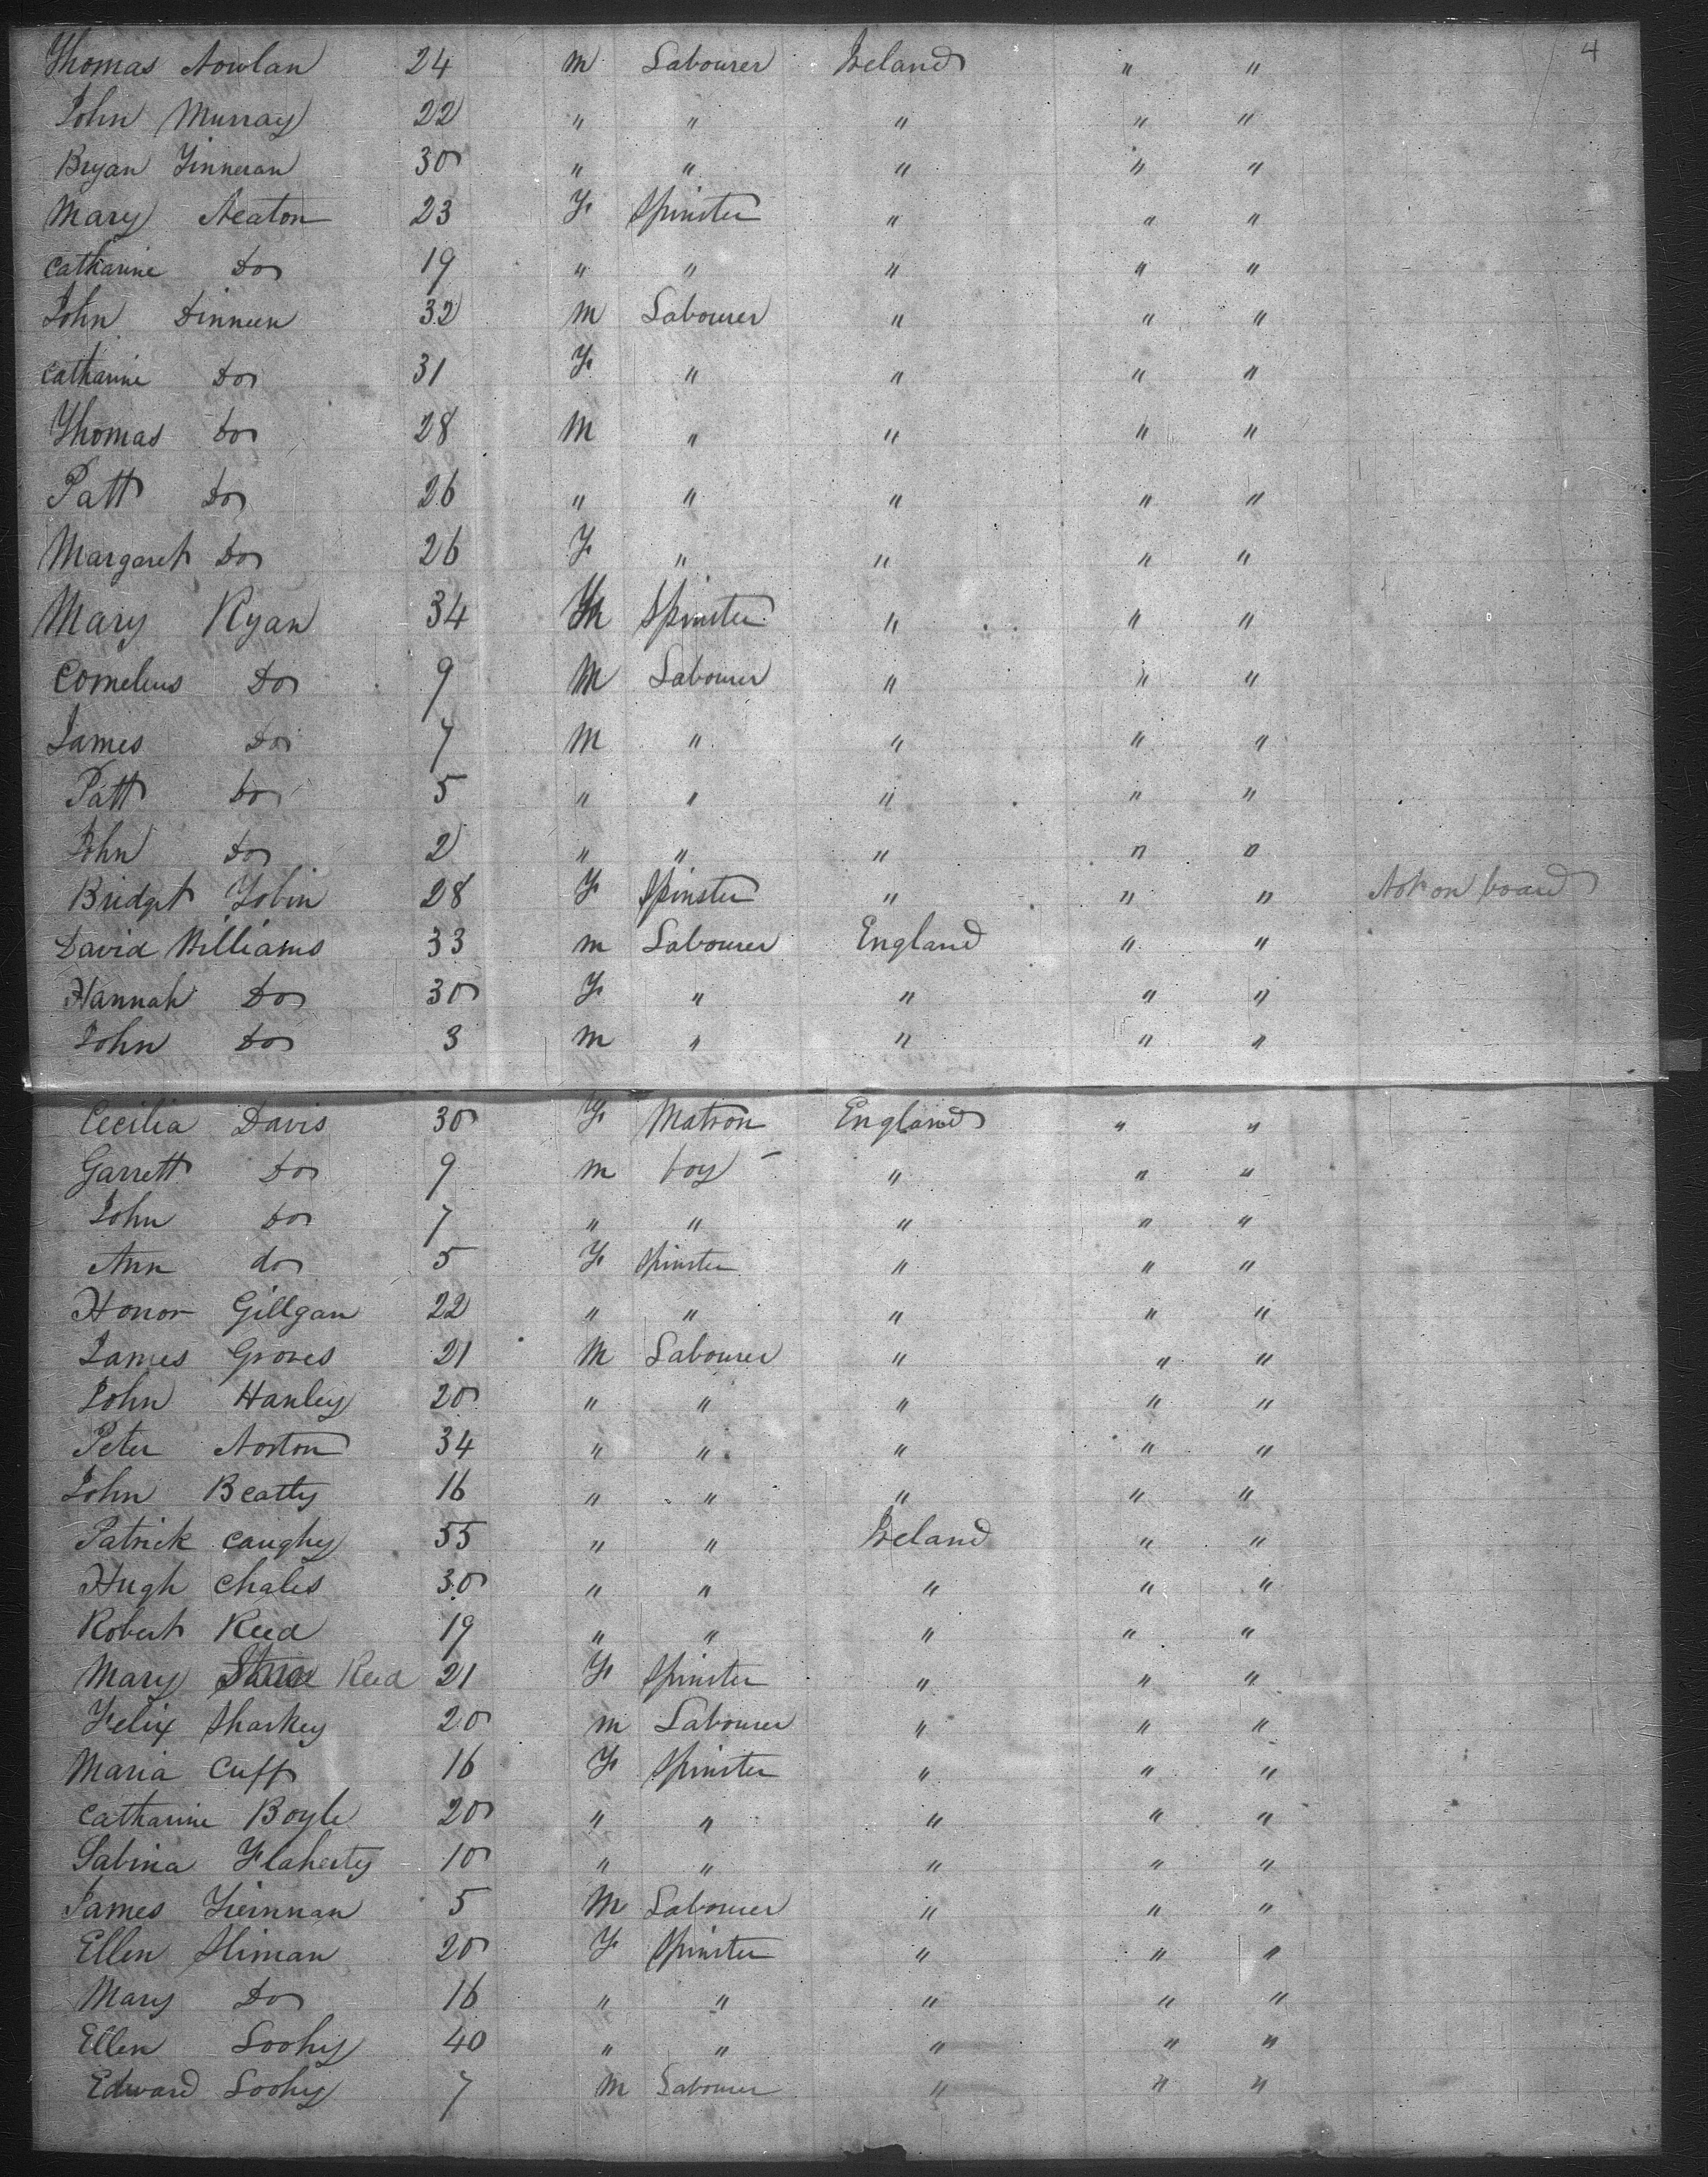 4
Thomas Nowlan 24 m Labourer Ireland " "
John Murray 22 " " " " "
Bryan Finneran 30 " " " " "
Mary Neaton 23 F Spinster " " "
Catharine Do 19 " " " " "
John Dinneen 32 m Labourer " " "
Catharine Do 31 F " " " "
Thomas Do 28 M " " " "
Patt Do 26 " " " " "
Margaret Do 26 F " " " "
Mary Ryan 34 Spinster " " "
Cornelius Do 9 M Labourer " " "
James Do 7 M " " " "
Patt Do 5 " " " " "
John Do 2 " " " " "
Bridget Tobin 28 F Spinster " " " Not on board
David Williams 33 m Labourer England " "
Hannah Do 30 F " " " "
John Do 3 m " " " "
Cecilia Davis 30 F Matron England " "
Garrett Do 9 m boy " " "
John Do 7 " " " " "
Ann do 5 F Spinster " " "
Honor Gillgan 22 " " " " "
James Groves 21 M Labourer " " "
John Hanley 20 " " " " "
Peter Norton 34 " " " " "
John Beatty 16 " " " " "
Patrick Caughy 55 " " Ireland " "
Hugh Chales 30 " " " " "
Robert Reed 19 " " " " "
Mary Reed 21 F Spinster " " "
Felix Sharkey 20 m Labourer " " "
Maria Cuff 16 F Spinster " " "
Catharine Boyle 20 " " " " "
Sabina Flaherty 10 " " " " "
James 5 M Labourer " " "
Ellen Sliman 20 F Spinster " " "
Mary Do 16 " " " " "
Ellen Loohy 40 " " " " "
Edward Loohy 7 m Labourer " " "